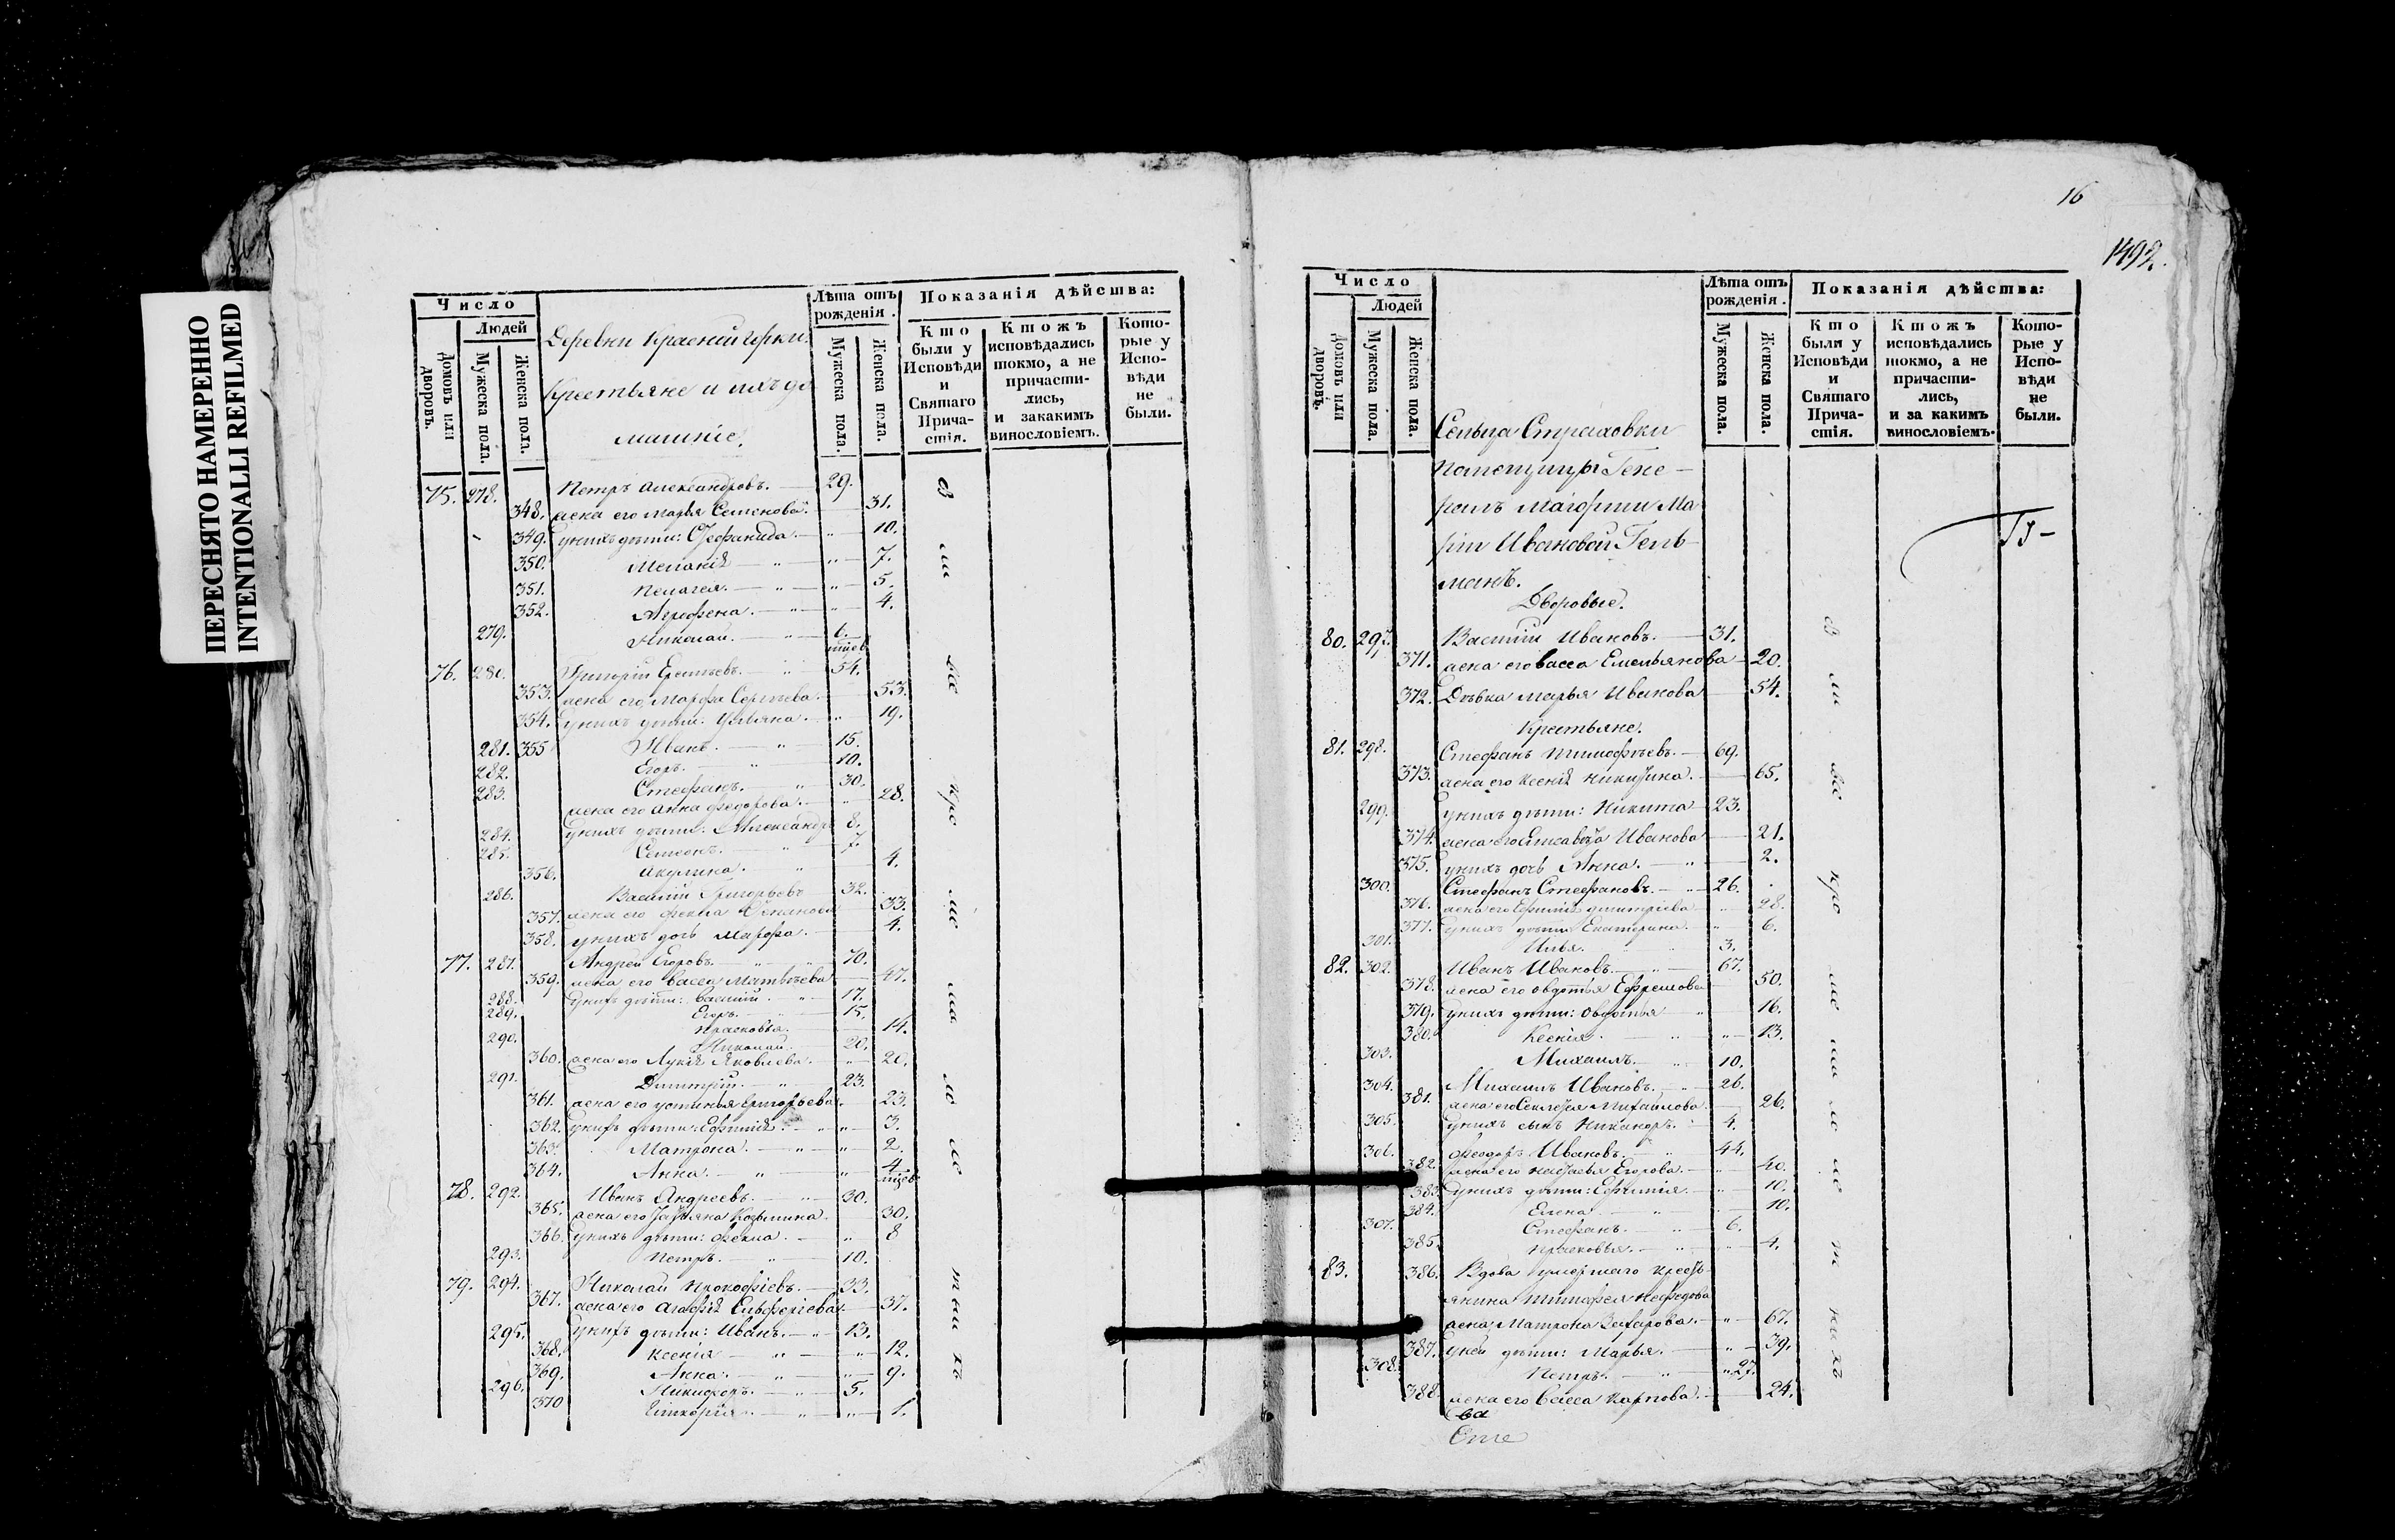 ПЕРЕСНЯТО НАМЕРЕННО
INTENTIONALLI REFILMED
Число
Людей
Домовъ или дворовъ.
Мужеска пола.
Женска пола.
Деревни Красной горки
Крестьяне и ихъ до
машніе.
Лѣта отъ рожденія.
Мужеска пола.
Женска пола.
Показанія дѣйства:
Кто были у Исповѣди и Святаго Прича-стія.
Ктожъ исповѣдались токмо, а не причасти-лись, и закакимъ винословіемъ.
Кото-рые у Испо-вѣди не были.
75. 278. Петръ Александровъ. 29.
348. жена его Марья Семенова. 31.
349. у нихъ дѣти: 10.
350. Меланія 7.
351. Пелагея. 5.
352. Агрефена. 4.
279. Николай. 6. мцев
76. 280. Григорій 54.
353. жена его Марфа Сергѣева. 53.
354. у нихъ дѣти: Ульяна. 19.
281. 355 Иванъ. 15.
282. Егоръ. 10.
283. Стефанъ. 30.
жена его Анна Федорова. 28.
284. у нихъ дѣти: Александръ 8.
285. Семенъ. 7.
356. Акулина. 4.
286. Василій Григорьевъ 32.
357. жена его Фекла 33.
358. у нихъ дочь Марфа. 4.
77. 287. Андрей Егоровъ. 70.
359. жена его Васса Матвѣева 47.
288. у нихъ дѣти: Василій 17.
289. Егоръ. 15.
Прасковья. 14.
290. Николай 20.
360. жена его Лукія Яковлева. 20.
291. Димитрій. 23.
361. жена его Устинья Григорьева. 23.
362. у нихъ дѣти: Ефимія. 3.
363. Матрона. 2.
364. Анна. 4 мцев
78. 292. Иванъ Андреевъ. 30.
365. жена его Татьяна Козьмина. 30.
366. у нихъ дѣти: Фекла. 8
293. Петръ. 10.
79. 294. Николай Прокофіевъ. 33.
367. жена его Агафія 37.
295. у нихъ дѣти: Иванъ. 13.
368. Ксенія 12.
369. Анна. 9.
296. Никифоръ. 5.
370 1.
16
1492.
Число
Людей
Домовъ или дворовъ.
Мужеска пола.
Женска пола.
Лѣта отъ рожденія.
Мужеска пола.
Женска пола.
Показанія дѣйства:
Кто были у Исповѣди и Святаго Прича-стія.
Ктожъ исповѣдались токмо, а не причасти-лись, и за какимъ винословіемъ.
Кото-рые у Испо-вѣди не были.
Сельца Страховки
помещицы Гене-
ралъ Маіорши Ма
ріи Ивановой Гель-
манъ.
Дворовые.
80. 297. Василій Ивановъ. 31.
371. жена его Васса Емельянова 20.
372. Дѣвка Марья Иванова 54.
Крестьяне.
81. 298. Стефанъ Тимофѣевъ. 69.
373. жена его Ксенія Никитина. 65.
299. у нихъ дѣти: Никита 23.
374. жена его Елисавета Иванова 21.
375. у нихъ дочь Анна. 2.
300. Стефанъ Стефановъ. 26.
376. жена его Ефимія Димитріева 28.
377. у нихъ дѣти Екатерина. 6.
301. Илья. 3.
82. 302. Иванъ Ивановъ. 67.
378. жена его Овдотья Ефремова 50.
379. у нихъ дѣти: Овдотья 16.
380. Ксенія. 13.
303. Михаилъ. 10.
304. Михаилъ Ивановъ. 26.
381. жена его Михайлова. 26.
305. у нихъ сынъ Никаноръ. 4.
306. Феодоръ Ивановъ. 44.
382. жена его Наталья Егорова. 40.
383. у нихъ дѣти: Ефимія. 10.
384. Елена. 10.
307. Стефанъ. 6.
385. Прасковья. 4.
83. 386. Вдова умершаго кресть-
янина Тимофея Нефедова
жена Матрона Захарова. 67.
387. у ней дѣти: Марья. 39.
308. Петръ. 27.
388. жена его Васса Карпова. 24.